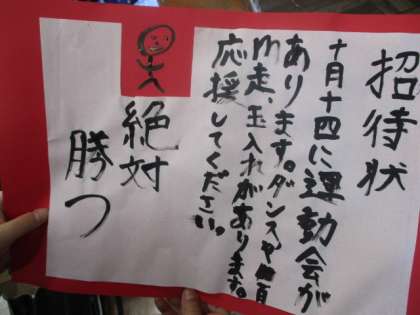 招待状
十月十四に運動会が
あります。ダンスや四百
m走、玉入れがあります。
応援してください。
絶対
勝つ